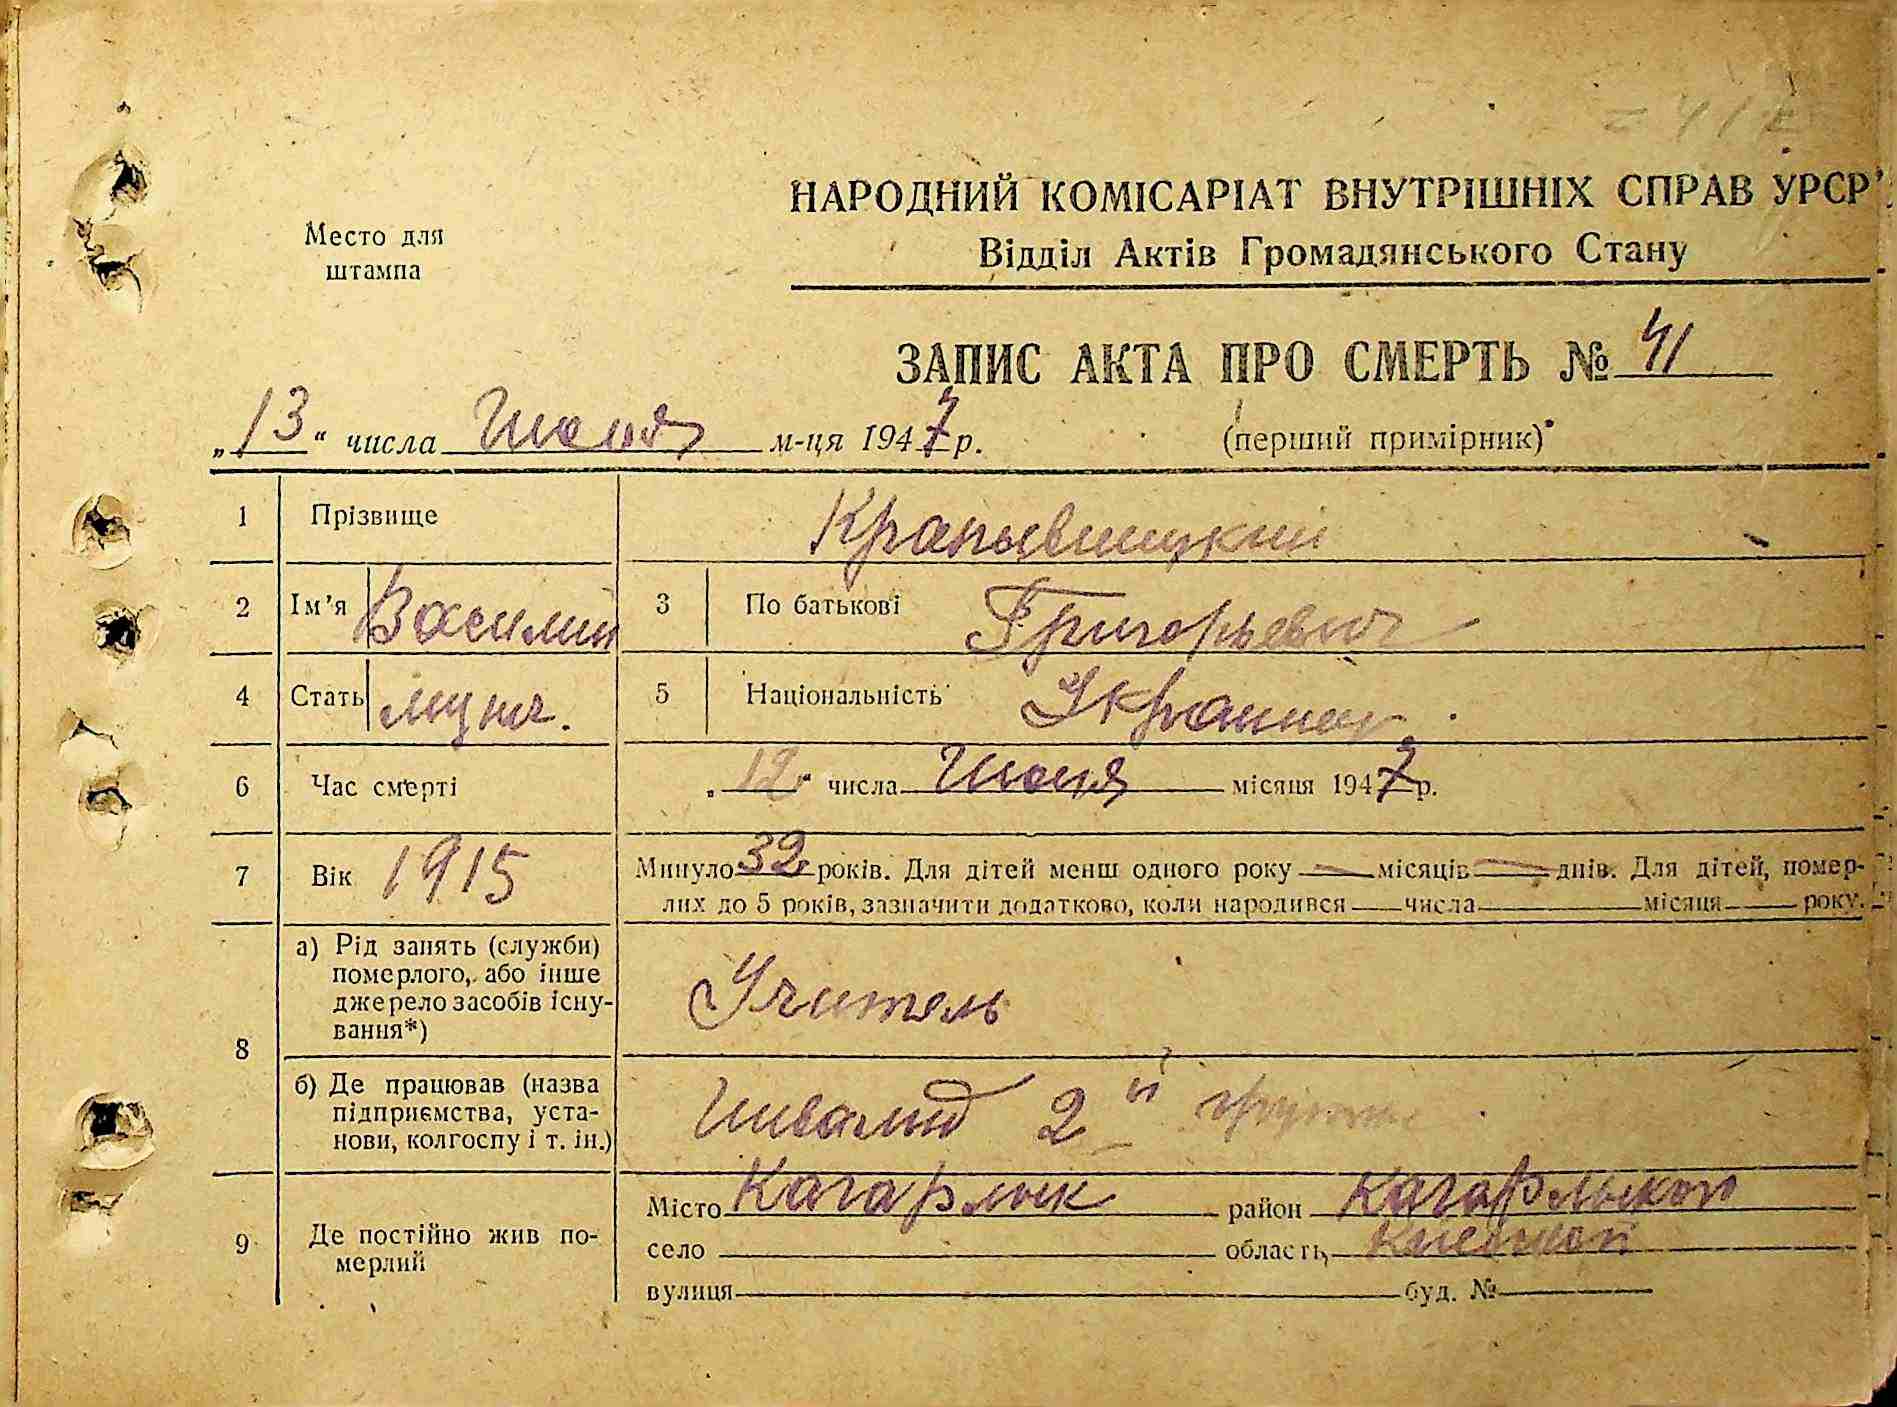 НАРОДНИЙ КОМІСАРІАТ ВНУТРІШНІХ СПРАВ УРСР
Відділ Актів Громадянського Стану
Место для
штампа
ЗАПИС АКТА ПРО СМЕРТЬ № 41
„13“ числа Июня м-ця 1947 р.
(перший примірник)
1 Прізвище Крапывницкий
2 Ім’я Василий 3 По батькові Григорьевич
4 Стать мужч. 5 Національність Украинец
6 Час смерті „12“ числа Июня місяця 1947 р.
7 Вік 1915 Минуло 32 років. Для дітей менш одного року — місяців — днів. Для дітей, помер-
лих до 5 років, зазначити додатково, коли народився числа місяця року.
8 а) Рід занять (служби)
померлого, або інше
джерело засобів існу-
вання*)
Учитель
б) Де працював (назва
підприємства, уста-
нови, колгоспу і т. ін.)
Инвалид 2й группы
9 Де постійно жив по-
мерлий
Місто Кагарлык район Кагарлыкский
село область Киевской
вулиця буд. №